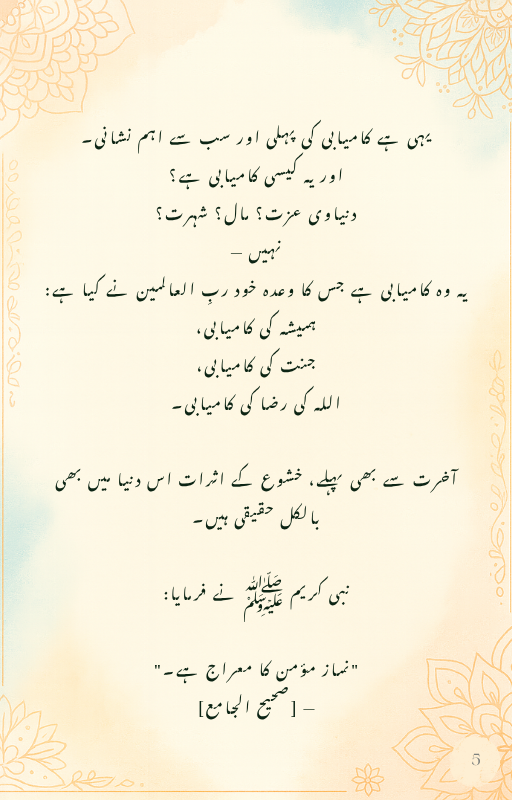 یہی ہے کامیابی کی پہلی اور سب سے اہم نشانی۔
اور یہ کیسی کامیابی ہے؟
دنیاوی عزت؟ مال؟ شہرت؟
نہیں –
یہ وہ کامیابی ہے جس کا وعدہ خود ربِ العالمین نے کیا ہے:
ہمیشہ کی کامیابی،
جنت کی کامیابی،
اللہ کی رضا کی کامیابی۔
آخرت سے بھی پہلے، خشوع کے اثرات اس دنیا میں بھی
بالکل حقیقی ہیں۔
نبی کریم ﷺ نے فرمایا:
"نماز مؤمن کا معراج ہے۔"
– [صحیح الجامع]
5